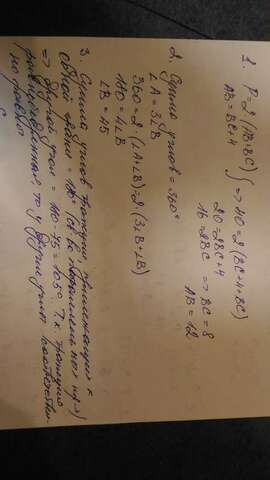 1. P = 2(AB+BC) } => 40 = 2(BC+4+BC)
AB = BC+4
20 = 2BC+4
16 = 2BC => BC = 8
AB = 12
2. Сумма углов = 360°
∠A = 3∠B
360 = 2·(∠A+∠B) = 2·(3∠B+∠B)
180 = 4∠B
∠B = 45
3. Сумма углов трапеции, прилежащих к
одной = 180° (св-во параллельных пр-х)
=> другой угол = 180-75 = 105°. Т.к. трапеция
равнобедренная, то у другие углы соответствен-
но равны